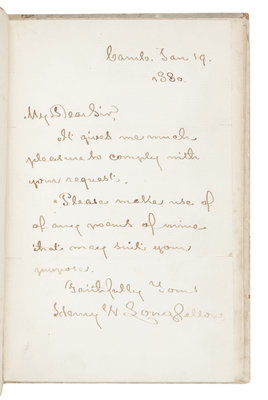 Camb. Jan 19.
1880.
My Dear Sir,
It gives me much
pleasure to comply with
your request.
Please make use of
of any poems of mine
that may suit your
purpose.
Faithfully Yours
Henry W Longfellow